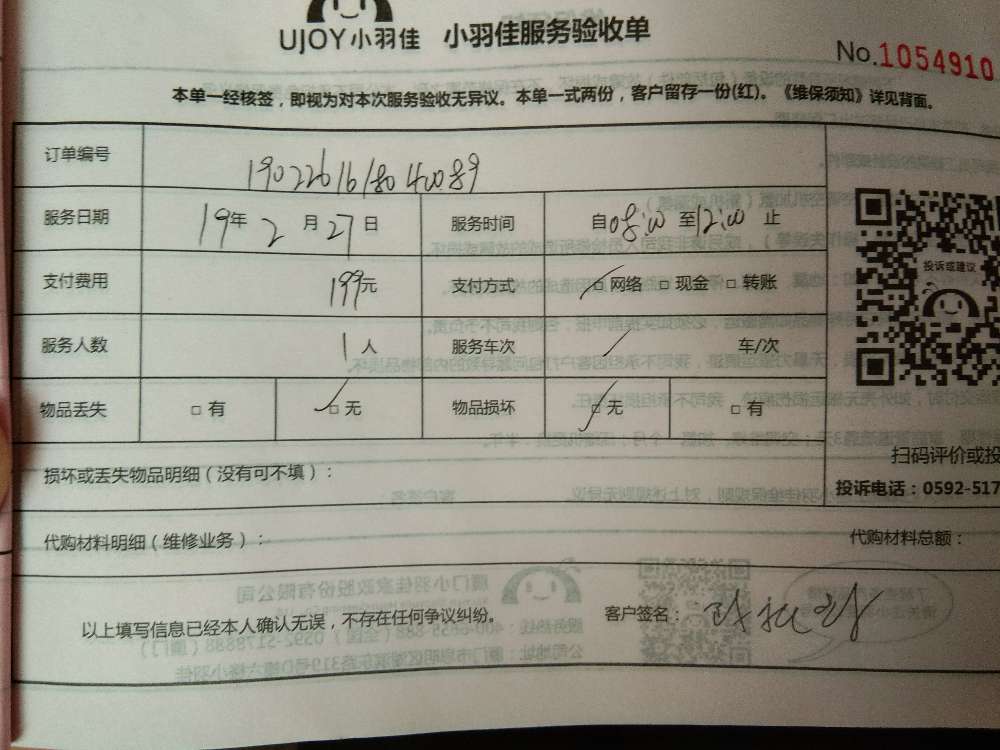 UJOY小羽佳 小羽佳服务验收单
No.1054910
本单一经核签，即视为对本次服务验收无异议。本单一式两份，客户留存一份(红)。《维保须知》详见背面。
订单编号 1902261618040089
服务日期 19年 2 月 27 日 服务时间 自08:00 至12:00 止
支付费用 199元 支付方式 □ 网络 □ 现金 □ 转账
服务人数 1 人 服务车次 车/次
物品丢失 □ 有 □ 无 物品损坏 □ 无 □ 有
投诉或建议
扫码评价或投
损坏或丢失物品明细（没有可不填）：
投诉电话：0592-517
代购材料明细（维修业务）：
代购材料总额：
以上填写信息已经本人确认无误，不存在任何争议纠纷。
客户签名：